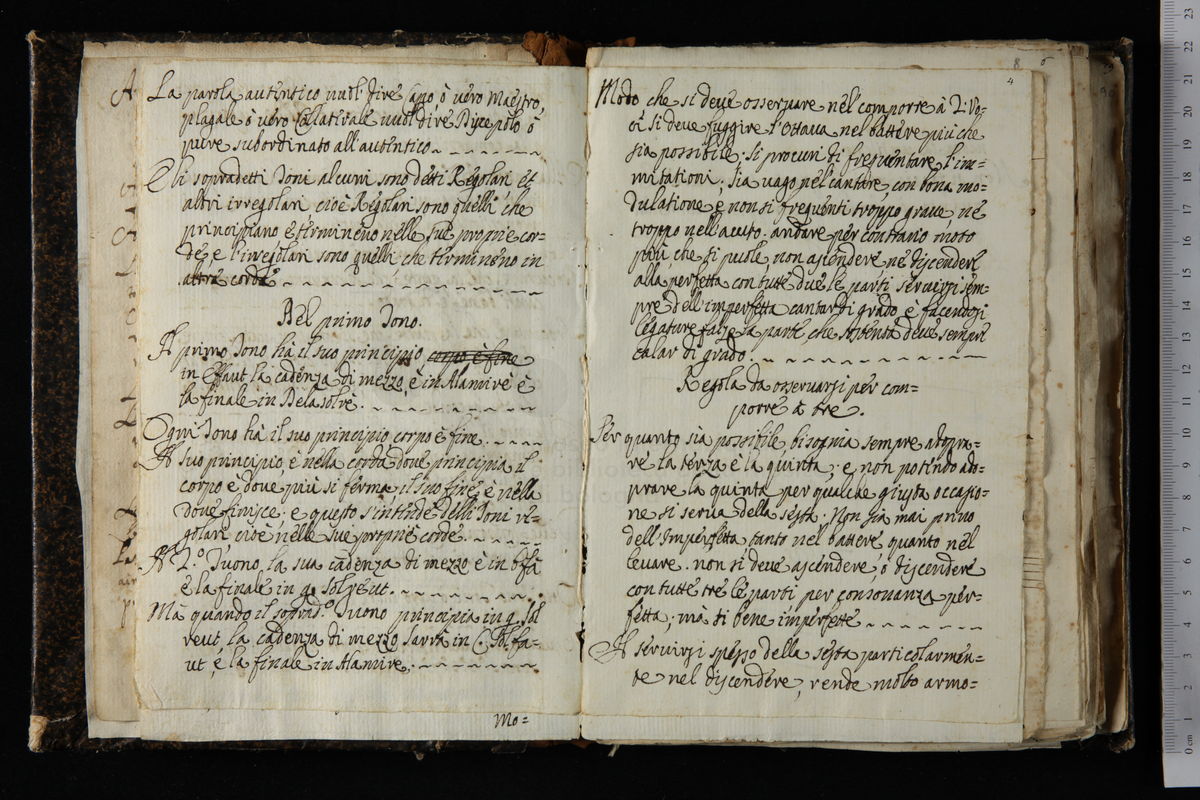 La parola autentico vuol dire Capo ò vero Maestro,
plagale ò vero Collaterale vuol dire Discepolo ò
pure subordinato all'autentico.
Dei sopradetti Toni alcuni sono detti Regolari et
altri irregolari, cioè Regolari sono quelli che
principiano e termineno nelle sue proprie cor=
de, e l'irregolari sono quelli che termineno in
altre corde
Del primo Tono.
Il primo Tono hà il suo principio corpo è fine
in Effaut la cadenza di mezzo, è in Alamirè è
la finale in Delasolrè.
Ogni Tono hà il suo principio corpo è fine.
Il suo principio è nella corda dove principia il
corpo e dove più si ferma il suo fine è nella
dove finisce, e questo s'intende delli Toni re=
golari cioè nelle sue proprie corde.
Il 2.º Tuono, la sua cadenza di mezzo è in b fà
è la finale in g. Sol reut.
Mà quando il soprad.º Tuono principia in g. Sol
reut, la cadenza di mezzo sarrà in C. Sol fa=
ut, è la finale in Alamire.
Mo=
8
4
Modo che si deve osservare nel comporre à 2: Vo=
ci si deve fuggire l'Ottava nel battere più che
sia possibile. Si procuri di frequentare l'im=
mitationi; sia vago nel cantare, con bona mo=
dulatione e non si frequenti troppo grave, nè
troppo nell'acuto. andare per contrario moto
più che si puole, non ascendere nè discendere
alla perfetta con tutte due le parti servirsi sem=
pre dell'imperfetta cantar di grado è facendosi
legature false la parte che stentà deve sempre
calar di grado.
Regola da osservarsi per com=
porre à tre.
Per quanto sia possibile, bisognia sempre adopra=
re la terza è la quinta; e non potendo ado=
prare la quinta per qualche giusta occasio=
ne si serva della sesta. Non sia mai privo
dell'Imperfetta tanto nel battere quanto nel
levare. non si deve ascendere, ò discendere
con tutte tre le parti per consonanza per=
fetta, mà si bene imperfette
Il servirsi spesso della sesta particolarmen=
te nel discendere, rende molto armo=